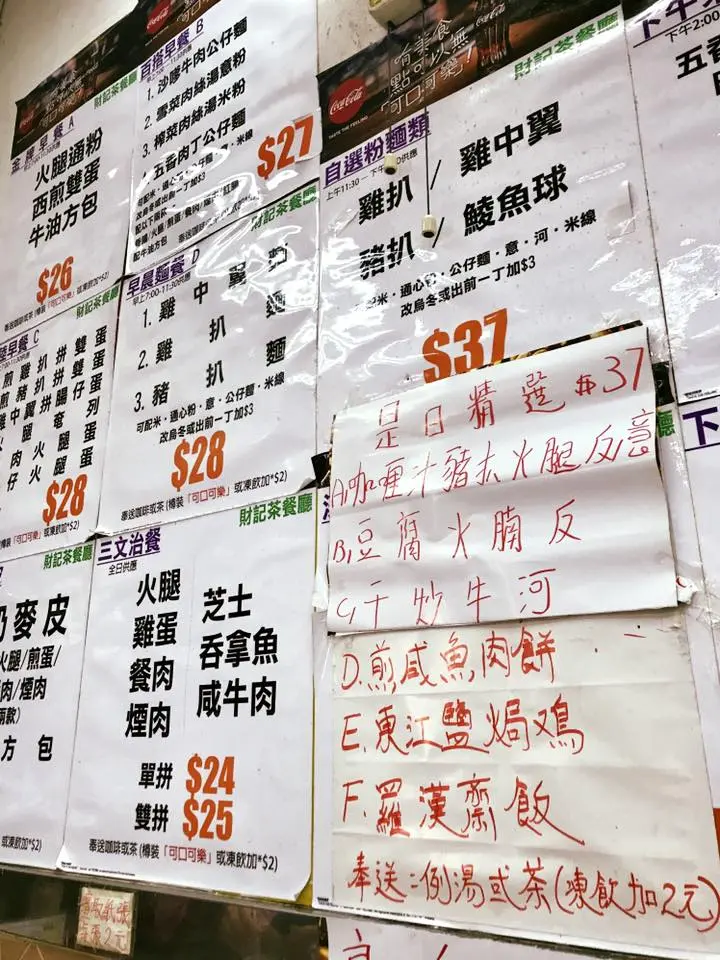 Coca-Cola
財記茶餐廳
火腿通粉
西煎雙蛋
牛油方包
$26
奉送咖啡或茶(樽裝「可口可樂」或凍飲加*$2)
百搭早餐 B
1. 沙嗲牛肉公仔麵
2. 雪菜肉絲湯意粉
3. 榨菜肉絲湯米粉
4. 五香肉丁公仔麵
改烏冬或出前一丁加$3
$27
Coca-Cola
TASTE THE FEELING
有美食
點可以無
「可口可樂」!
財記茶餐廳
自選粉麵類
上午11:30 – 下午
雞扒 / 雞中翼
豬扒 / 鯪魚球
可配米・通心粉・公仔麵・意・河・米線
改烏冬或出前一丁加$3
$37
下午2:00
五香
早餐 C
$28
財記茶餐廳
早晨麵餐 D
早上7:00-11:30供應
1. 雞中翼麵
2. 雞扒麵
3. 豬扒麵
可配米・通心粉・意・公仔麵・米線
改烏冬或出前一丁加$3
$28
奉送咖啡或茶(樽裝「可口可樂」或凍飲加*$2)
財記茶餐廳
奶麥皮
火腿/煎蛋/
肉/煙肉
方包
或凍飲加*$2)
財記茶餐廳
三文治餐
全日供應
火腿 芝士
雞蛋 吞拿魚
餐肉 咸牛肉
煙肉
單拼 $24
雙拼 $25
奉送咖啡或茶(樽裝「可口可樂」或凍飲加*$2)
是日精選 #37
A,咖喱汁豬扒火腿反意
B,豆腐火腩反
C,干炒牛河
D.煎咸魚肉餅
E.東江鹽焗鸡
F.羅漢齋飯
奉送:例湯或茶(凍飲加2元)